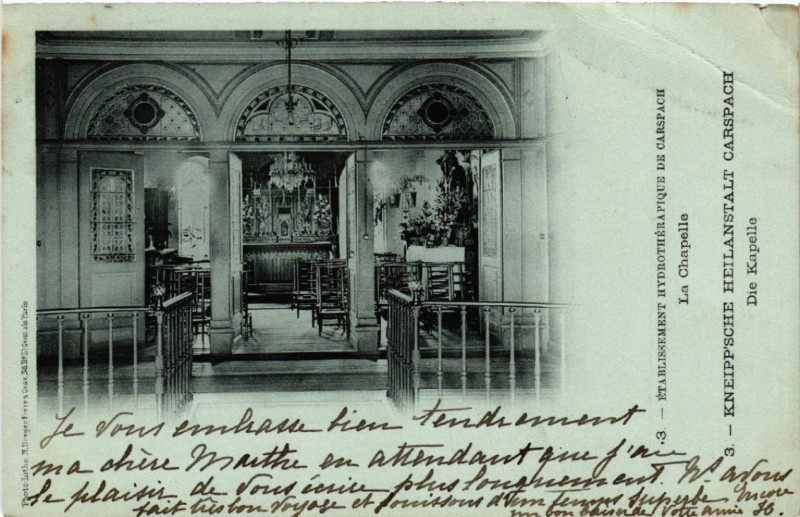 3. — ÉTABLISSEMENT HYDROTHÉRAPIQUE DE CARSPACH
La Chapelle
3. — KNEIPP'SCHE HEILANSTALT CARSPACH
Die Kapelle
Je vous embrasse bien tendrement
ma chère Marthe en attendant que j'aie
le plaisir de vous écrire plus longuement. Ns avons
fait très bon voyage et jouissons d'un temps superbe Encore
un bon baiser de votre amie
Photo-Litho.
Paris